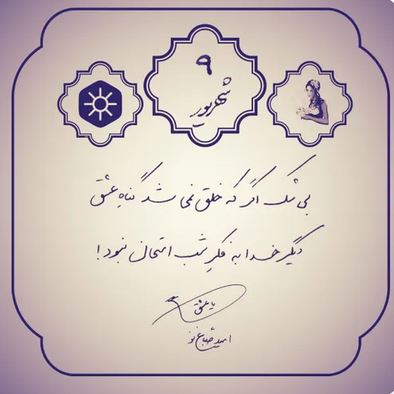 ۹
شهریور
بی شک اگر که خلق نمی شد گناهِ عشق
دیگر خدا به فکرِ شبِ امتحان نبود!
یا عشق
امید صباغ نو